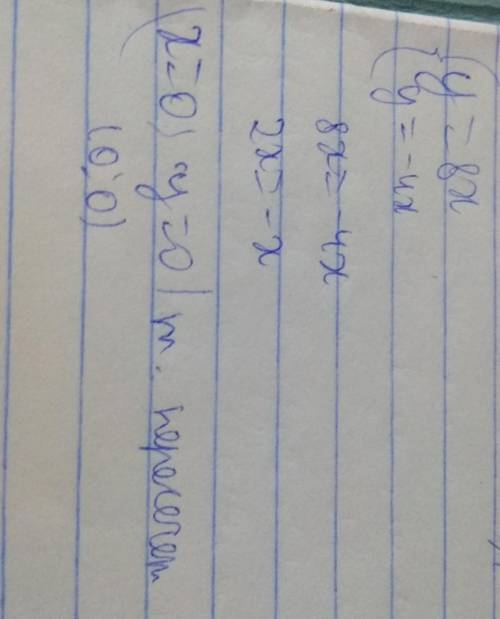 { y = 8x
y = -4x
8x = -4x
2x = -x
(x=0; y=0) т. пересечен
(0;0)